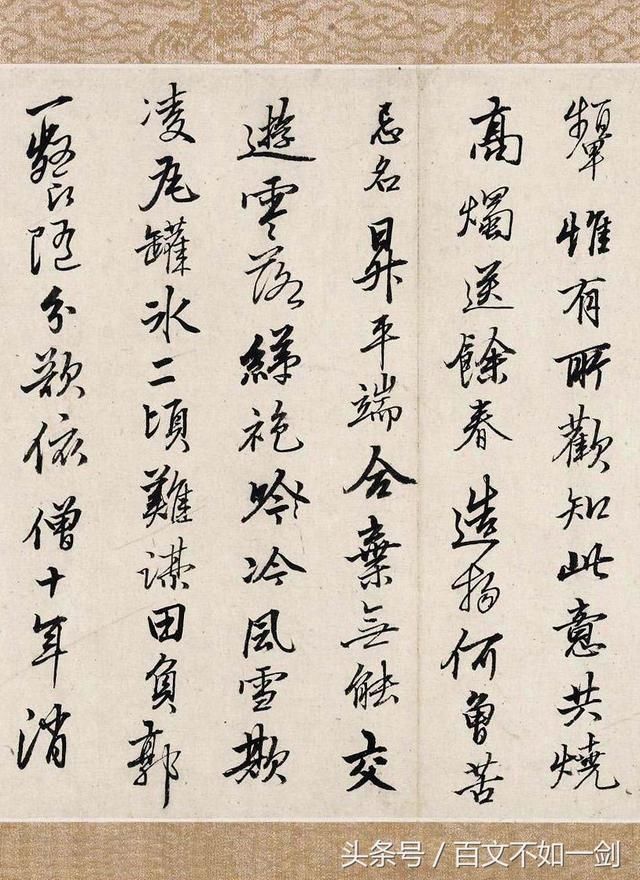 顰惟有所歡知此意共燒
高燭送餘春造物何曾苦
忌名昇平端合棄無能交
遊零落綈袍吟冷風雪欺
凌瓦罐冰二頃難謀田負郭
一餐隨分欲依僧十年消
头条号 / 百文不如一剑